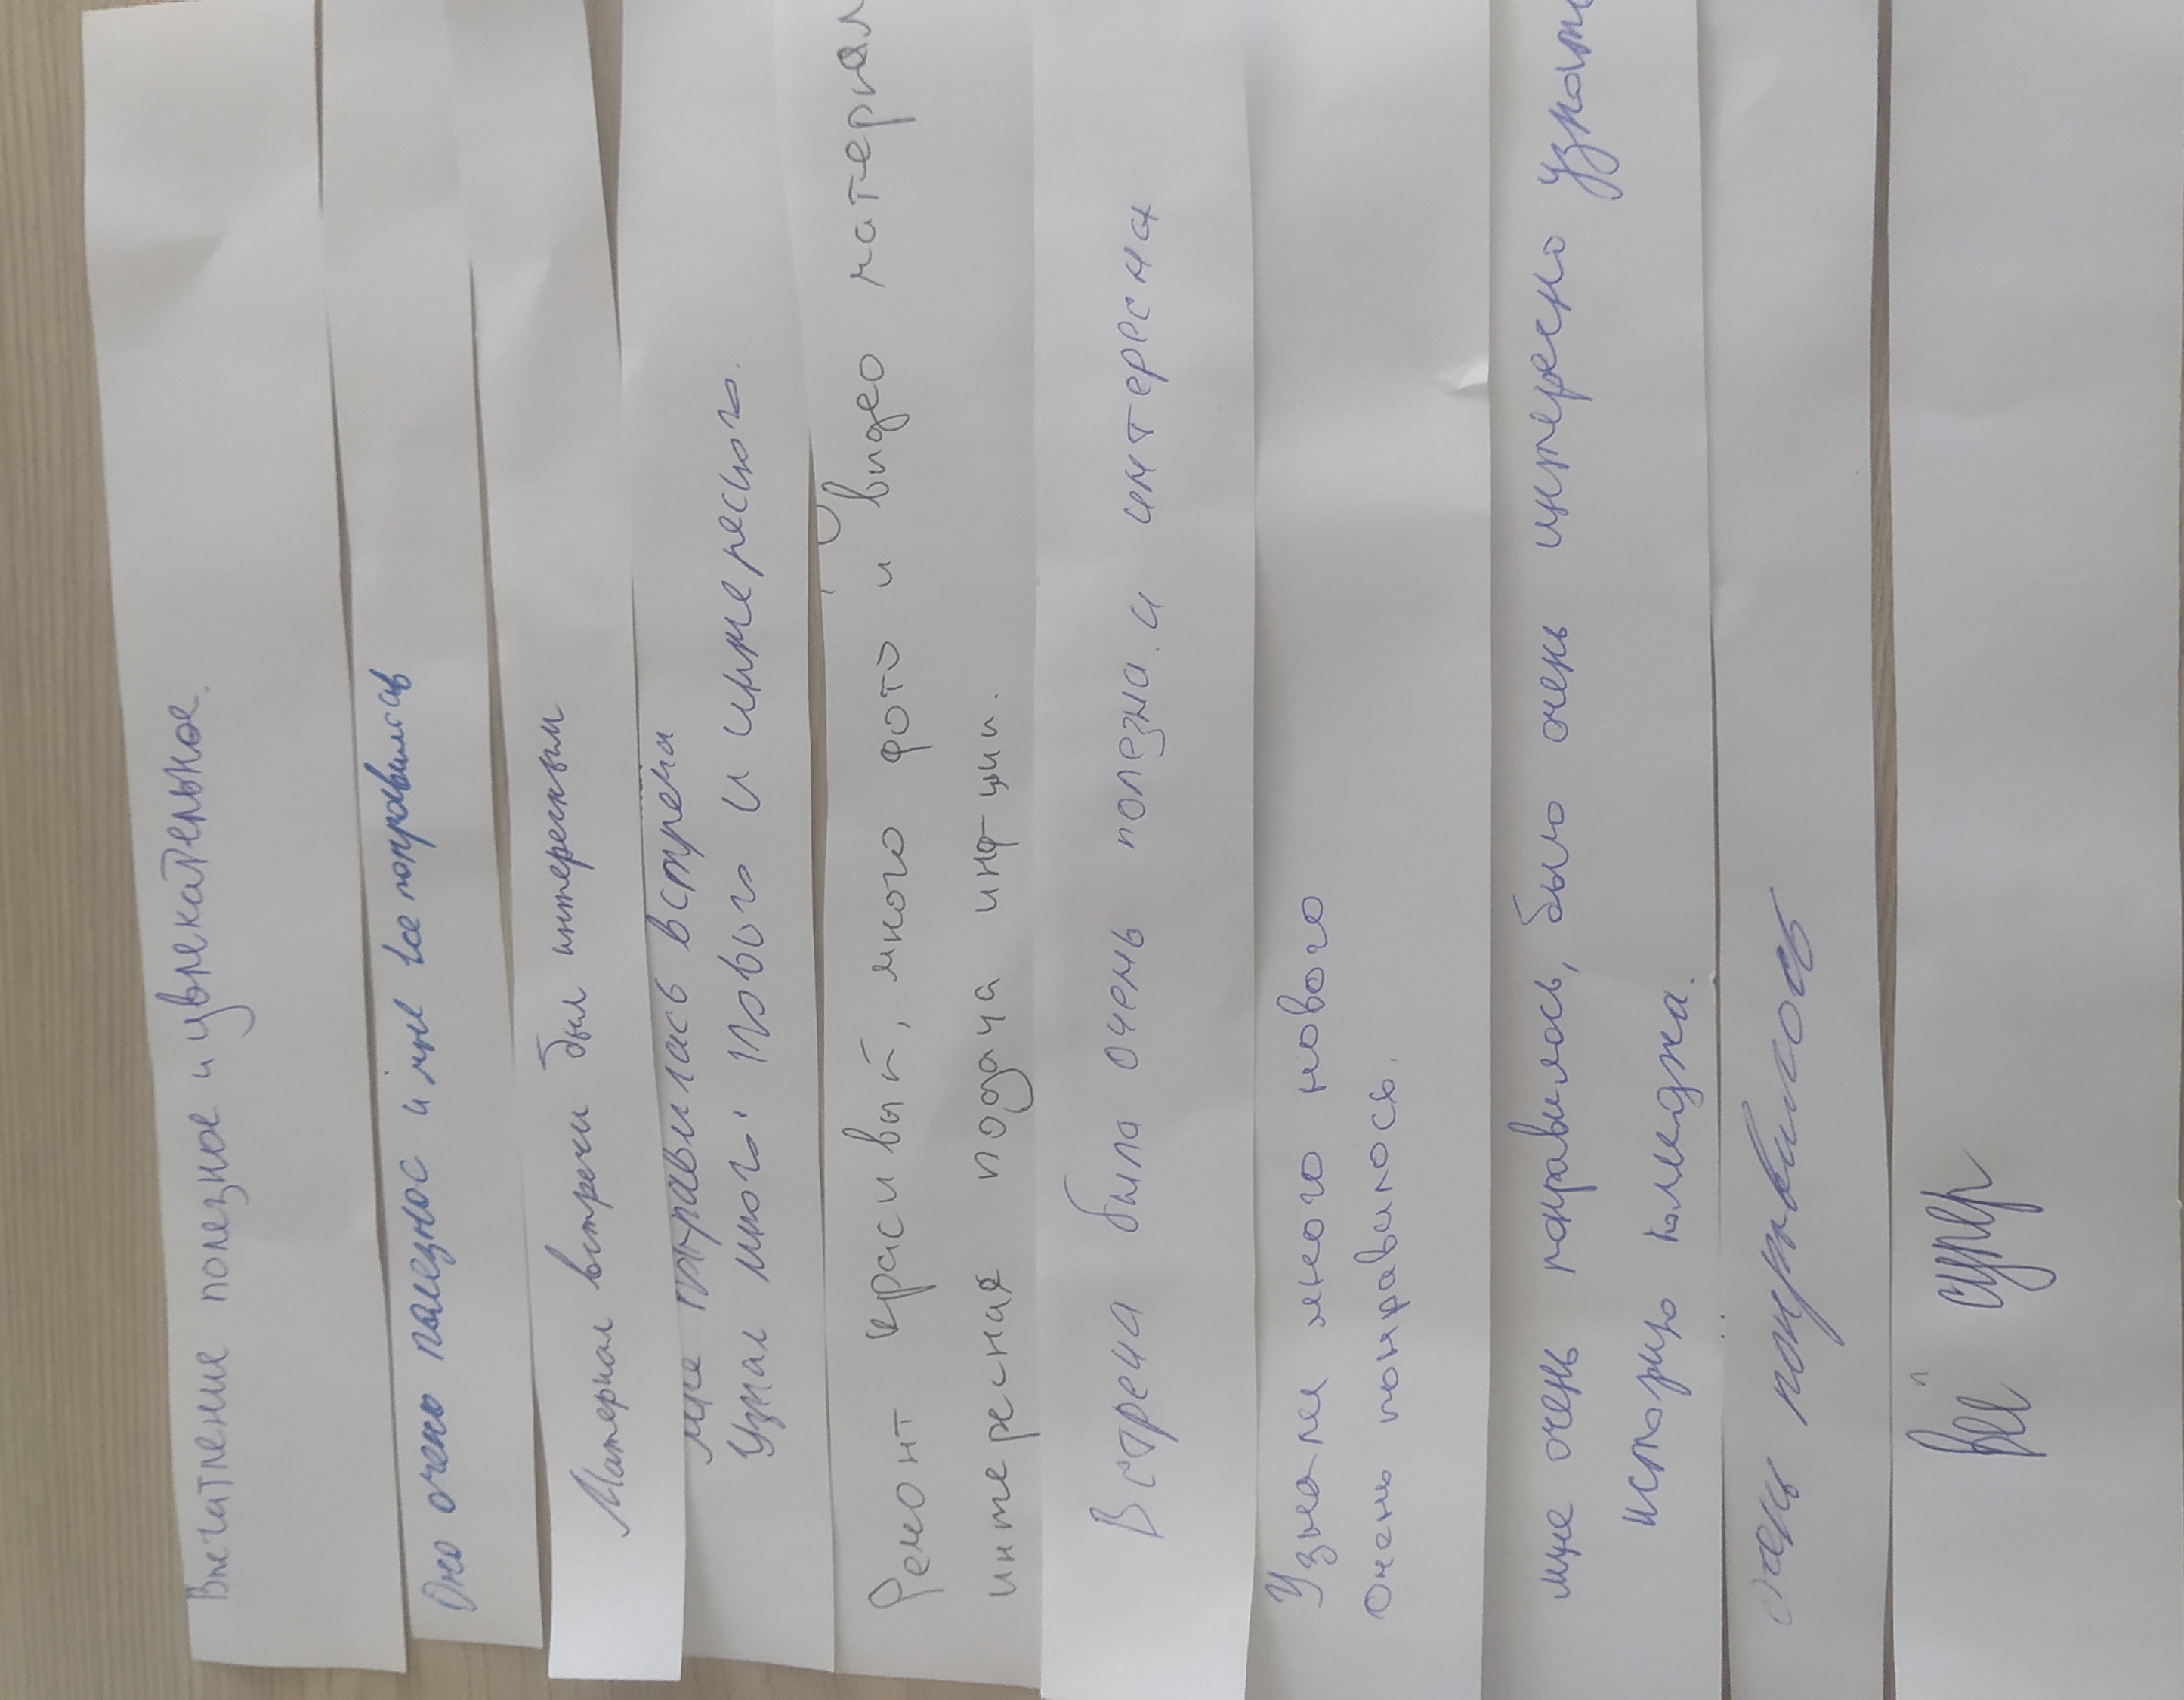 Впечатление полезное и увлекательное.
Оно очень полезное и мне все понравилось
Материал встречи был интересным
Мне понравилась встреча
Узнал много нового и интересного.
Ремонт красивый, много фото и видео материал
интересная подача инф-ции.
Встреча была очень полезна и интересна
Узнали много нового
Очень понравилось.
мне очень понравилось, было очень интересно узнать
историю колледжа.
очень понравилось
Всё супер